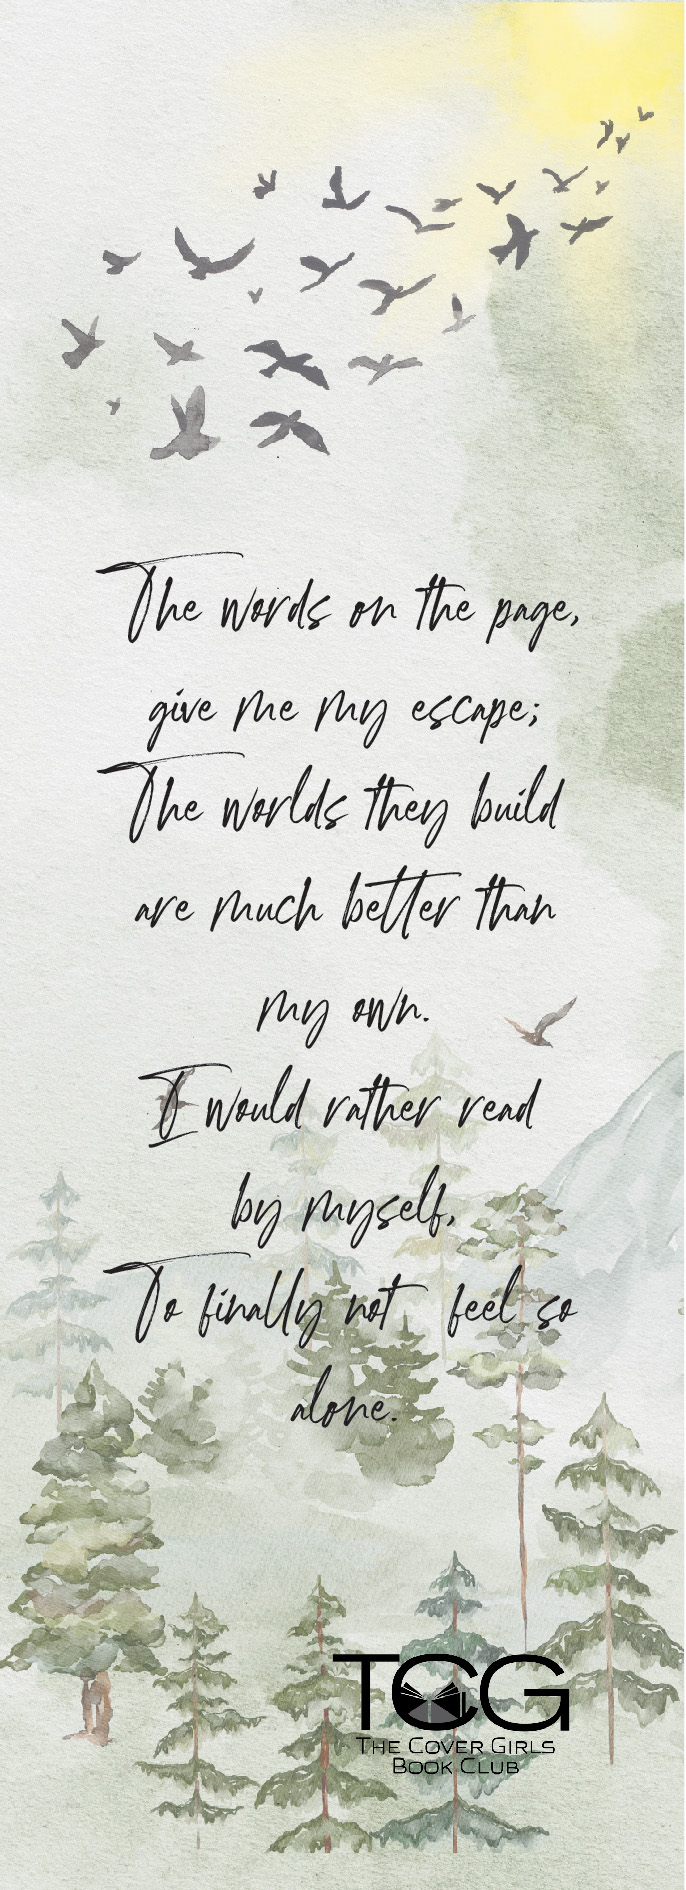 The words on the page,
give me my escape;
The worlds they build
are much better than
my own.
I would rather read
by myself,
To finally not feel so
alone.
TCG
The Cover Girls
Book Club